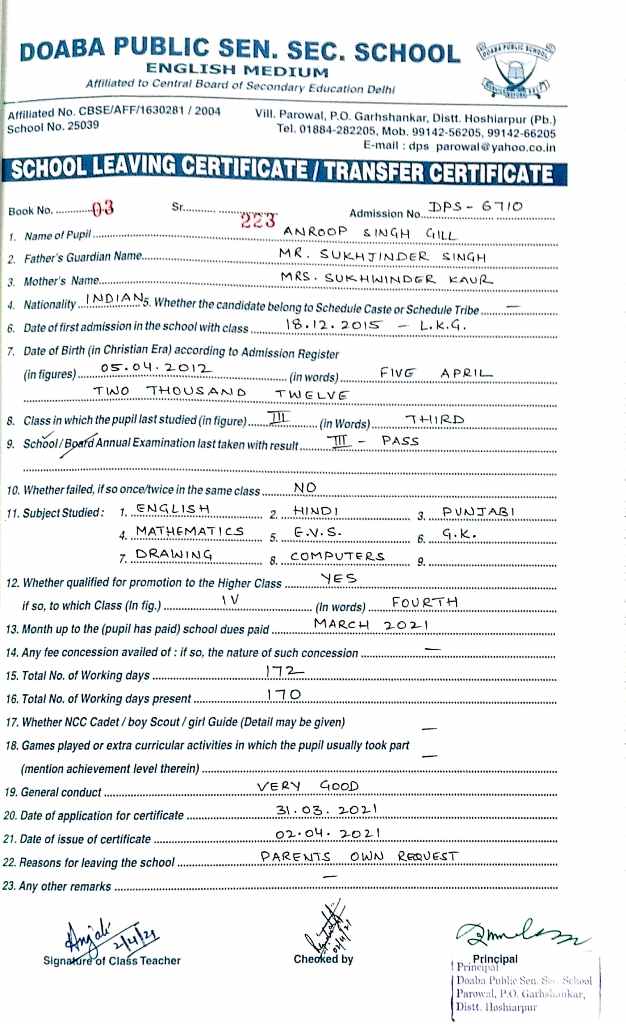 DOABA PUBLIC SEN. SEC. SCHOOL
ENGLISH MEDIUM
Affiliated to Central Board of Secondary Education Delhi
DOABA PUBLIC SCHOOL
Affiliated No. CBSE/AFF/1630281 / 2004
School No. 25039
Vill. Parowal, P.O. Garhshankar, Distt. Hoshiarpur (Pb.)
Tel. 01884-282205, Mob. 99142-56205, 99142-66205
E-mail : dps parowal@yahoo.co.in
SCHOOL LEAVING CERTIFICATE / TRANSFER CERTIFICATE
Book No. 03 Sr. 223 Admission No. DPS - 6710
1. Name of Pupil ANROOP SINGH GILL
2. Father's Guardian Name MR. SUKHJINDER SINGH
3. Mother's Name MRS. SUKHWINDER KAUR
4. Nationality INDIAN 5. Whether the candidate belong to Schedule Caste or Schedule Tribe —
6. Date of first admission in the school with class 18.12.2015 - L.K.G.
7. Date of Birth (in Christian Era) according to Admission Register
(in figures) 05.04.2012 (in words) FIVE APRIL
TWO THOUSAND TWELVE
8. Class in which the pupil last studied (in figure) III (in Words) THIRD
9. School / Board Annual Examination last taken with result III - PASS
10. Whether failed, if so once/twice in the same class NO
11. Subject Studied : 1. ENGLISH 2. HINDI 3. PUNJABI
4. MATHEMATICS 5. E.V.S. 6. G.K.
7. DRAWING 8. COMPUTERS 9.
12. Whether qualified for promotion to the Higher Class YES
if so, to which Class (In fig.) IV (In words) FOURTH
13. Month up to the (pupil has paid) school dues paid MARCH 2021
14. Any fee concession availed of : if so, the nature of such concession —
15. Total No. of Working days 172
16. Total No. of Working days present 170
17. Whether NCC Cadet / boy Scout / girl Guide (Detail may be given) —
18. Games played or extra curricular activities in which the pupil usually took part
(mention achievement level therein) —
19. General conduct VERY GOOD
20. Date of application for certificate 31.03.2021
21. Date of issue of certificate 02.04.2021
22. Reasons for leaving the school PARENTS OWN REQUEST
23. Any other remarks —
Anjali 2/4/21
Signature of Class Teacher
Checked by
Principal
Principal
Doaba Public Sen. Sec. School
Parowal, P.O. Garhshankar,
Distt. Hoshiarpur